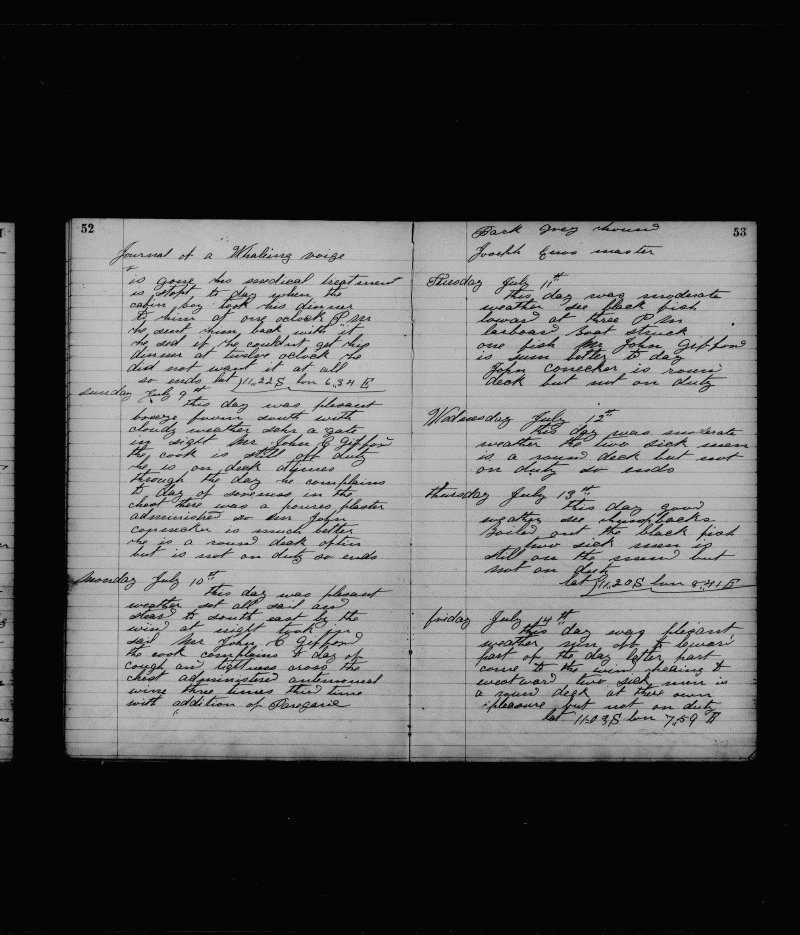 52
Journal of a Whaling voige
is gone his medical treetment
is stopt to day when the
cabin boy took his dinner
to him at one oclock P M
he sent him back with it
he sed if he couldnt get his
dinner at twelve oclock he
did not want it at all
so ends lat 11,22 S lon 6,34 E
sunday July 9th
this day was plesant
breeze from south with
cloudy weather schr a gate
in sight Mr John C Gifford
the cook is still off duty
he is on deck
through the day he complains
to day of soreness in the
chest there was a poures plaster
administred so Mr John
conecker is much better
he is a round deck often
but is not on duty so ends
Monday July 10th
this day was plesant
weather set all sail and
steard to south east by the
wind at night took in
sail Mr John C Gifford
the cook complains to day of
cough and tightness cross the
chest administred antemonial
wine three times this time
with addition of Paregaric
53
Bark Grey hound
Joseph Enos master
Tuesday July 11th
this day was moderate
weather see black fish
loward at three P M
larboard boat struck
one fish Mr John Gifford
is sum better to day
John conecker is round
deck but not on duty
Wednesday July 12th
this day was moderate
weather the two sick men
is a round deck but not
on duty so ends
thursday July 13th
this day good
weather see humpbacks
boiled out the black fish
two sick men is
still on the mend but
not on duty
lat 11,20 S lon 8,41 E
friday July 14th
this day was plesant
weather run of to leward
part of the day latter part
come to the wind heading to
westward two sick men is
a round deck at there own
pleasure but not on duty
lat 11,03 S lon 7,59 E